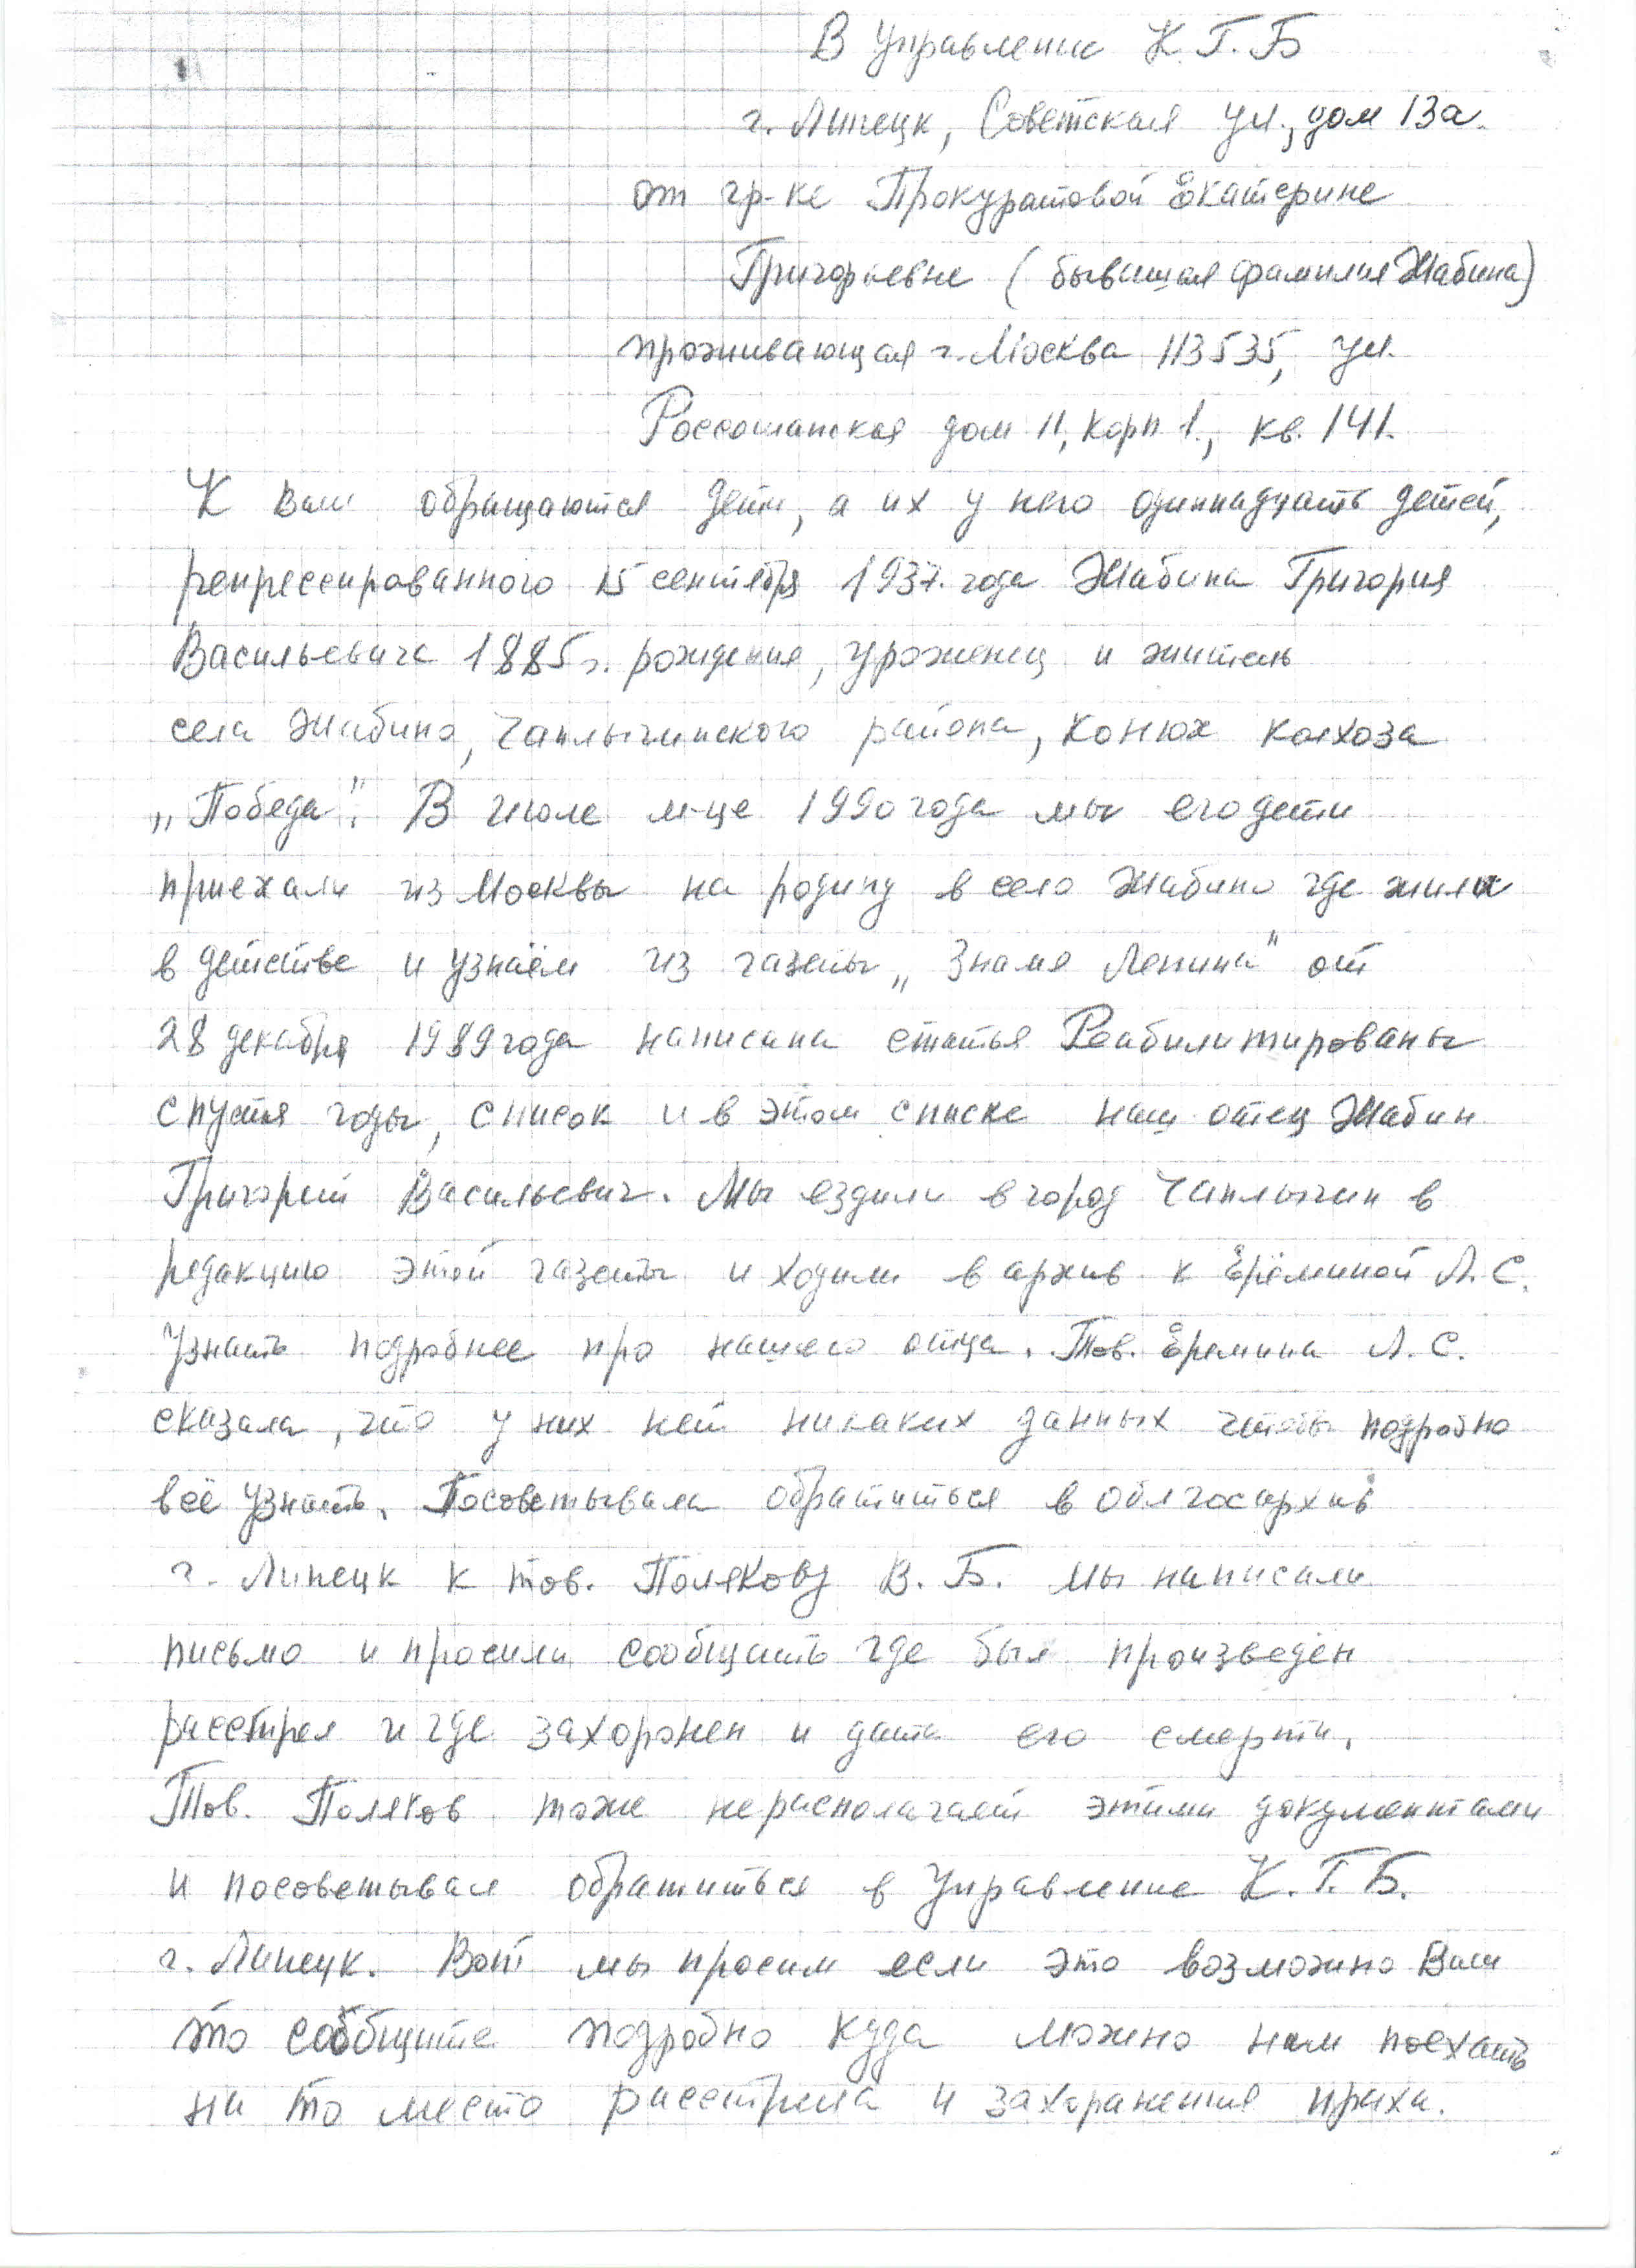 В Управление К.Г.Б
г. Липецк, Советская ул., дом 13а.
от гр-ке Прокуратовой Екатерине
Григорьевне (бывшая фамилия Жабина)
проживающая г. Москва 113535, ул.
Россошанская дом 11, корп 1., кв. 141.
К Вам обращаются дети, а их у него одиннадцать детей,
репрессированного 15 сентября 1937. года Жабина Григория
Васильевича 1885 г. рождения, уроженец и житель
села Жабино, Чаплыгинского района, конюх колхоза
„Победа". В июле м-це 1990 года мы его дети
приехали из Москвы на родину в село Жабино где жили
в детстве и узнаём из газеты „Знамя Ленина" от
28 декабря 1989 года написана статья Реабилитированы
спустя годы, список и в этом списке наш отец Жабин
Григорий Васильевич. Мы ездили в город Чаплыгин в
редакцию этой газеты и ходили в архив к Ерёминой Л.С.
Узнать подробнее про нашего отца. Тов. Еремина Л.С.
сказала, что у них нет никаких данных чтобы подробно
всё узнать. Посоветывала обратиться в облгосархив
г. Липецк к тов. Полякову В.Б. мы написали
письмо и просили сообщить где был произведён
расстрел и где захоронен и дата его смерти.
Тов. Поляков тоже нерасполагает этими документами
и посоветывал обратиться в Управление К.Г.Б.
г. Липецк. Вот мы просим если это возможно Вам
то сообщите подробно куда можно нам поехать
на то место расстрела и захоранения праха.